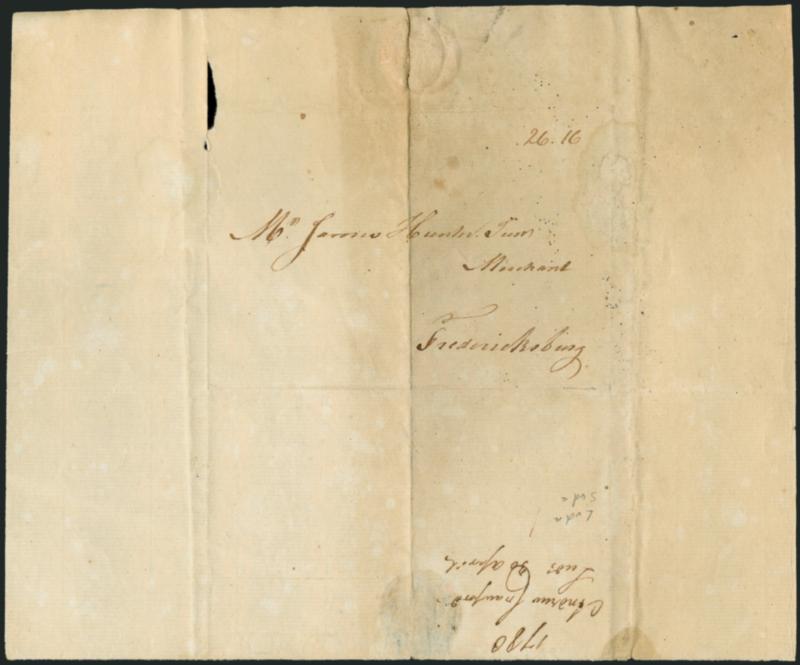 26.16
Mr. James Hunter Junr
Merchant
Fredericksburg
1780
Andrew Crawford
30 April